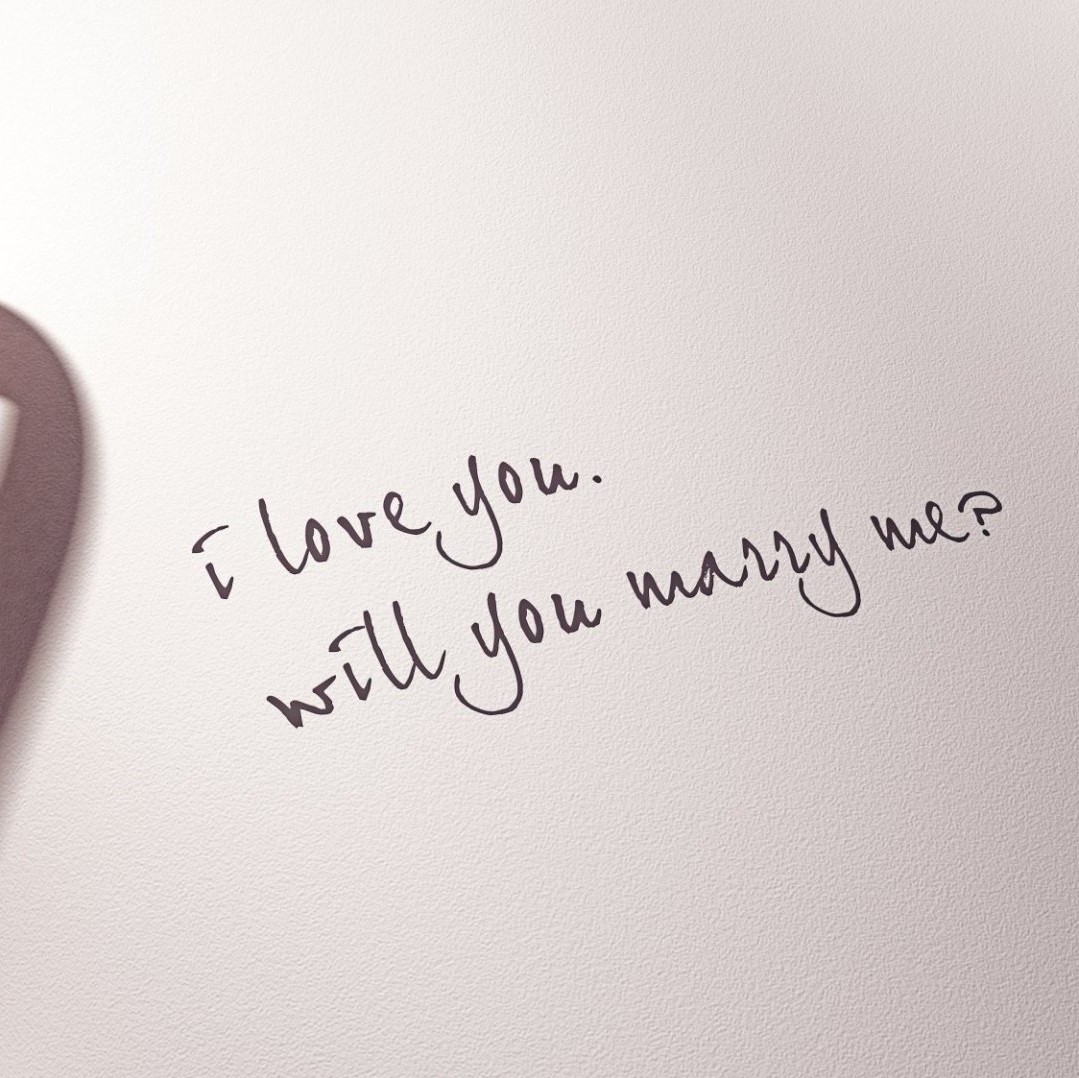 i love you.
will you marry me?